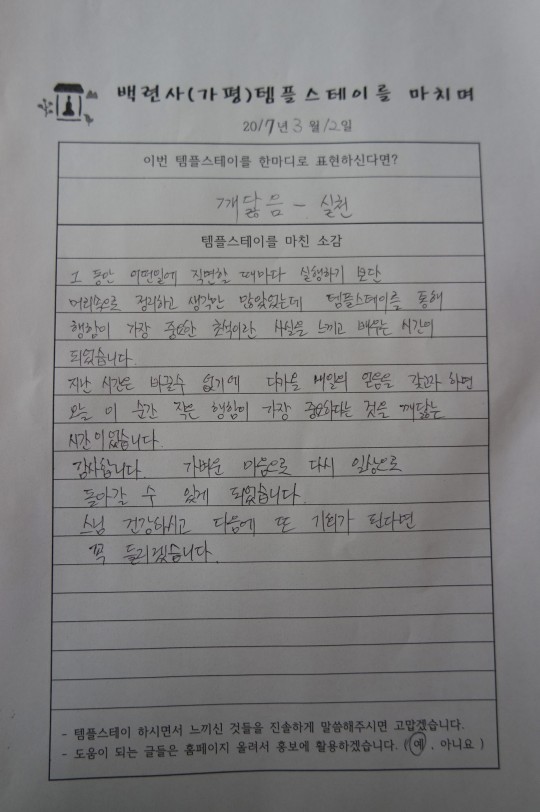 백련사(가평)템플스테이를 마치며
2017년 3월 12일
이번 템플스테이를 한마디로 표현하신다면?
깨닳음 - 실천
템플스테이를 마친 소감
그 동안 어떤일에 직면할 때마다 실행하기 보단
머리속으로 정리하고 생각만 많았었는데 템플스테이를 통해
행함이 가장 중요한 초석이란 사실을 느끼고 배우는 시간이
되었습니다.
지난 시간은 바꿀수 없기에 다가올 내일의 믿음을 갖고자 하면
오늘 이 순간 작은 행함이 가장 중요하다는 것을 깨닳는
시간이었습니다.
감사합니다. 가벼운 마음으로 다시 일상으로
돌아갈 수 있게 되었습니다.
스님 건강하시고 다음에 또 기회가 된다면
꼭 들리겠습니다.
- 템플스테이 하시면서 느끼신 것들을 진솔하게 말씀해주시면 고맙겠습니다.
- 도움이 되는 글들은 홈페이지 올려서 홍보에 활용하겠습니다. ( 예 , 아니요 )